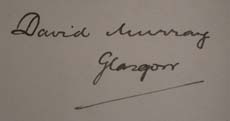 David Murray
Glasgow